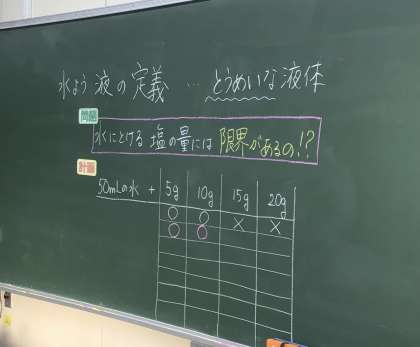 水よう液の定義…とうめいな液体
問題
水にとける塩の量には限界があるの!?
計画
50mLの水 + 5g 10g 15g 20g
○ ○ × ×
○ ○